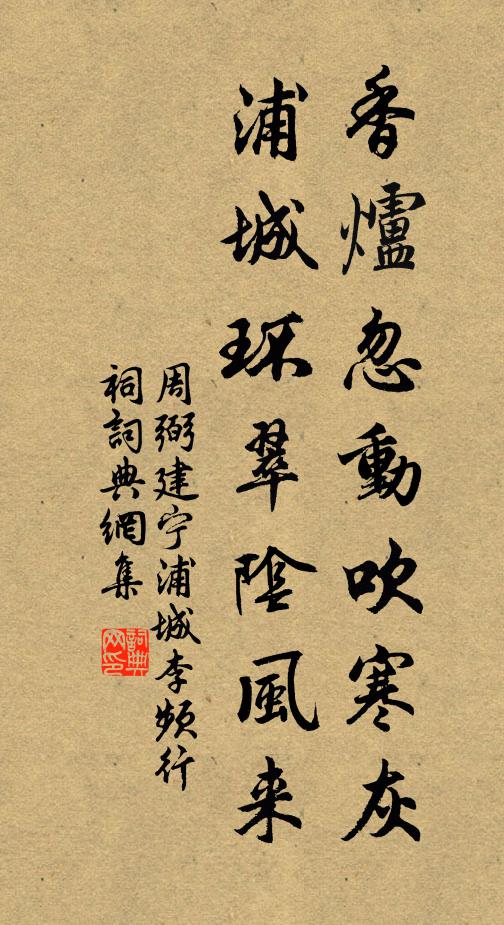 香爐忽動吹寒灰
浦城环翠陰風来
周弼建宁浦城李频行
祠詞典網集
詞典网印